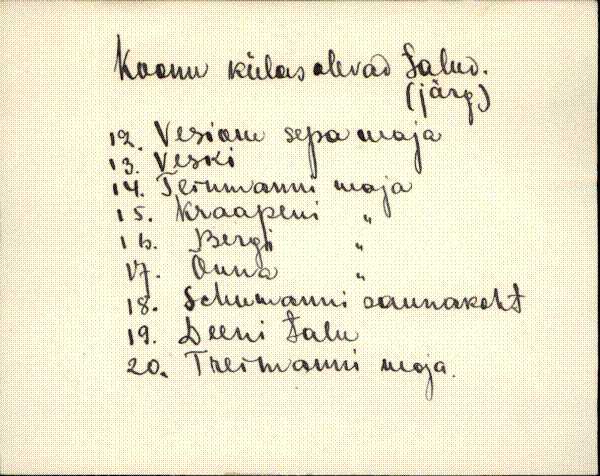 Koonu külas olevad talud.
(järg)
12. Vesiaru sepa maja
13. Veski
14. Teinmanni maja
15. Kraapeni "
16. Bergi "
17. Õnna "
18. Schumanni saunakoht
19. Deeni talu
20. Treimanni maja.